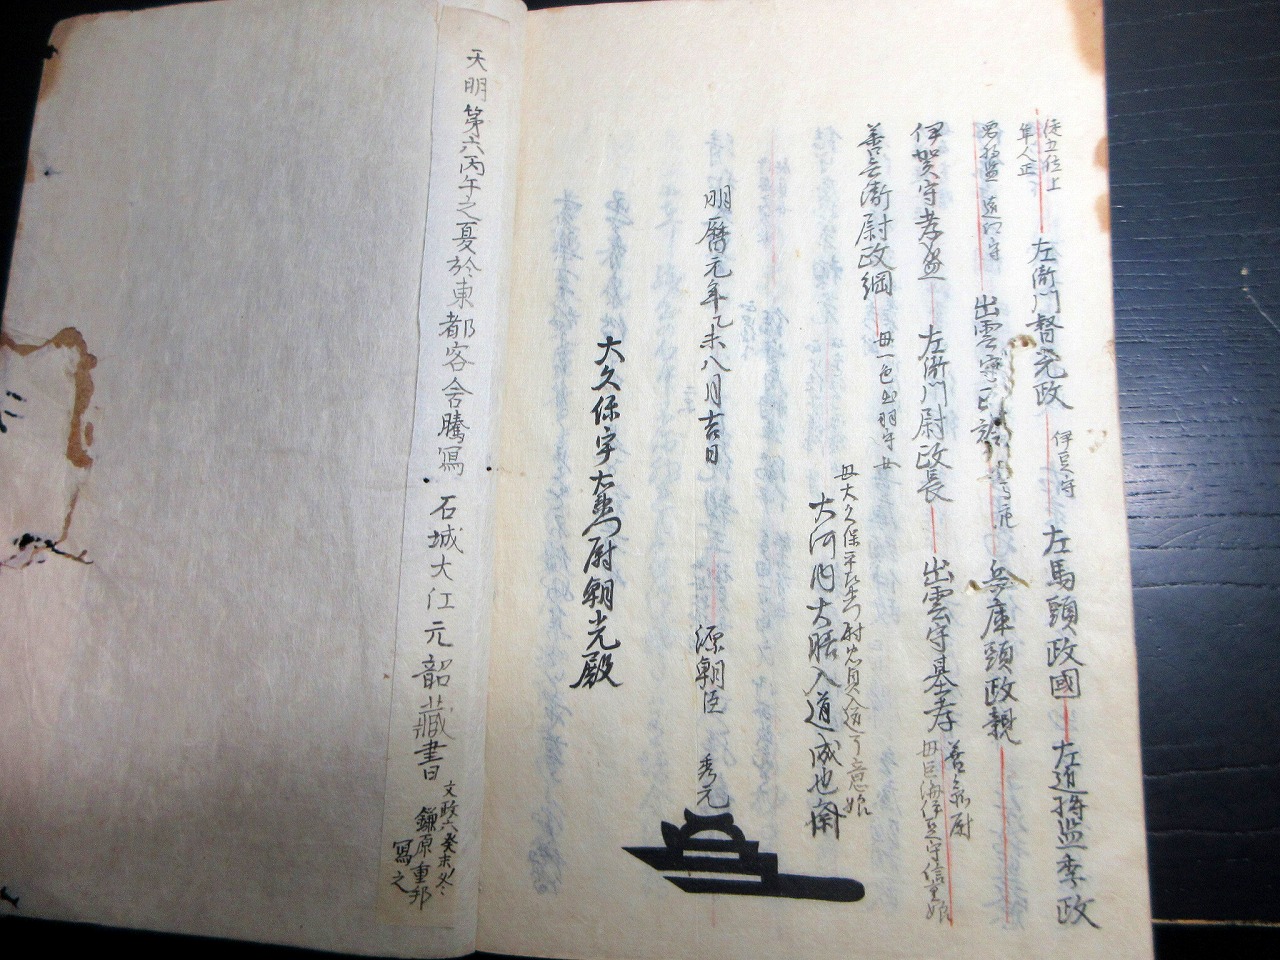 従五位上
隼人正
左衞門督元政
伊豆守
左馬頭政國
左近将監季政
出雲守
兵庫頭政親
伊賀守孝盛
左衞門尉政長
出雲守基孝
善兵衞尉
母巨海伊豆守信重娘
善兵衞尉政綱
母一色出羽守女
母大久保平左衞門尉忠員入道了意娘
大河内大膳入道成也
明暦元年乙未八月吉日
源朝臣
秀元
大久保宇右衞門尉朝光殿
天明第六丙午之夏於東都客舎騰寫
石城大江元韶藏書
文政六癸未冬
鎌原重邦
寫之